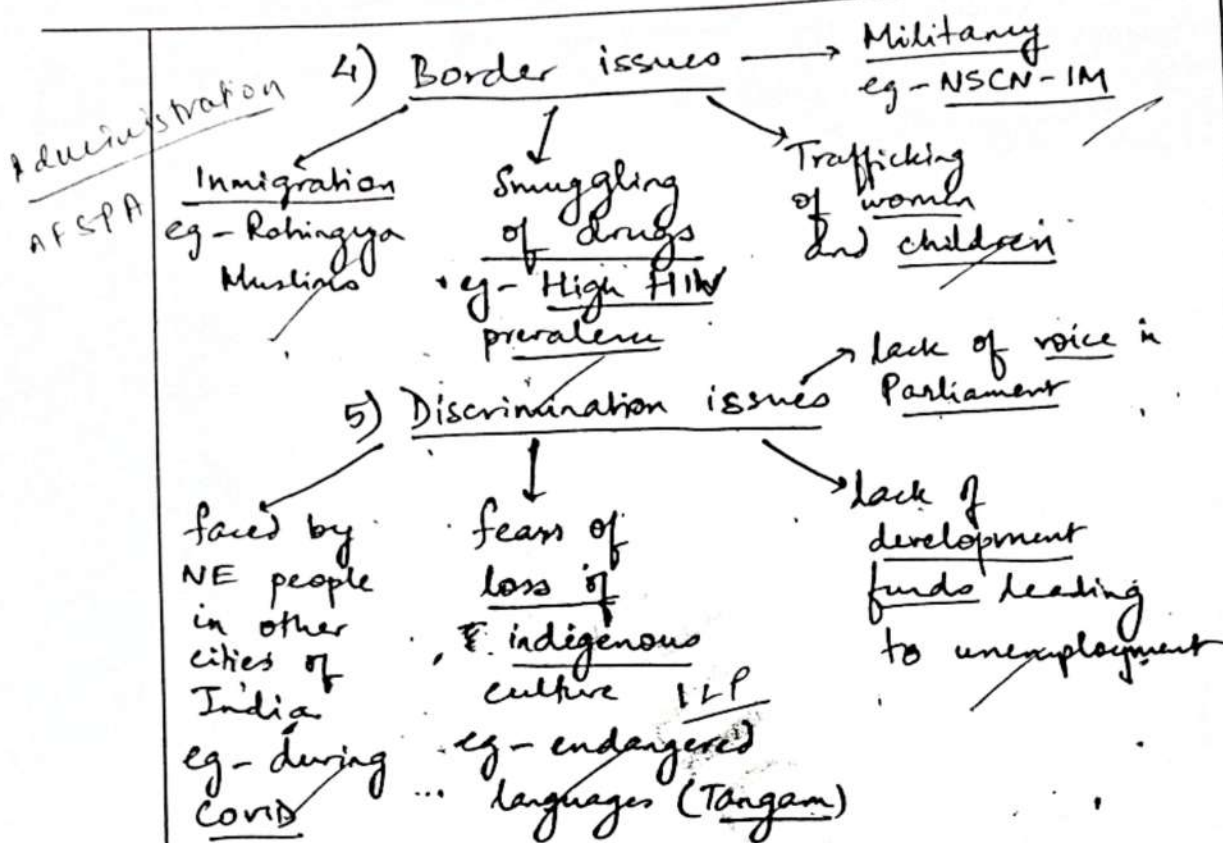 Administration
AFSPA
4) Border issues → Militancy
eg - NSCN-IM
Inmigration
eg - Rohingya
Muslims
Smuggling
of drugs
eg - High HIV
prevalence
Trafficking
of women
and children
5) Discrimination issues
lack of voice in
Parliament
faced by
NE people
in other
cities of
India
eg - during
COVID
fears of
loss of
indigenous
culture ILP
eg - endangered
... languages (Tangam)
lack of
development
funds leading
to unemployment